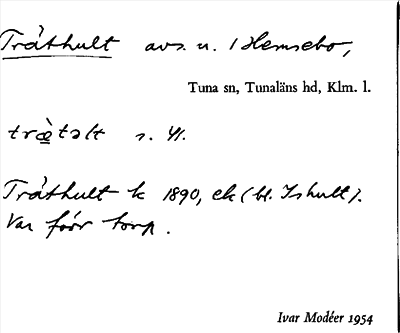 Tråthult avs. u. Hemsebo,
Tuna sn, Tunaläns hd, Klm. l.
trætəlt s. 41.
Tråthult k 1890, ek (bl. Ishult).
Var förr torp.
Ivar Modéer 1954